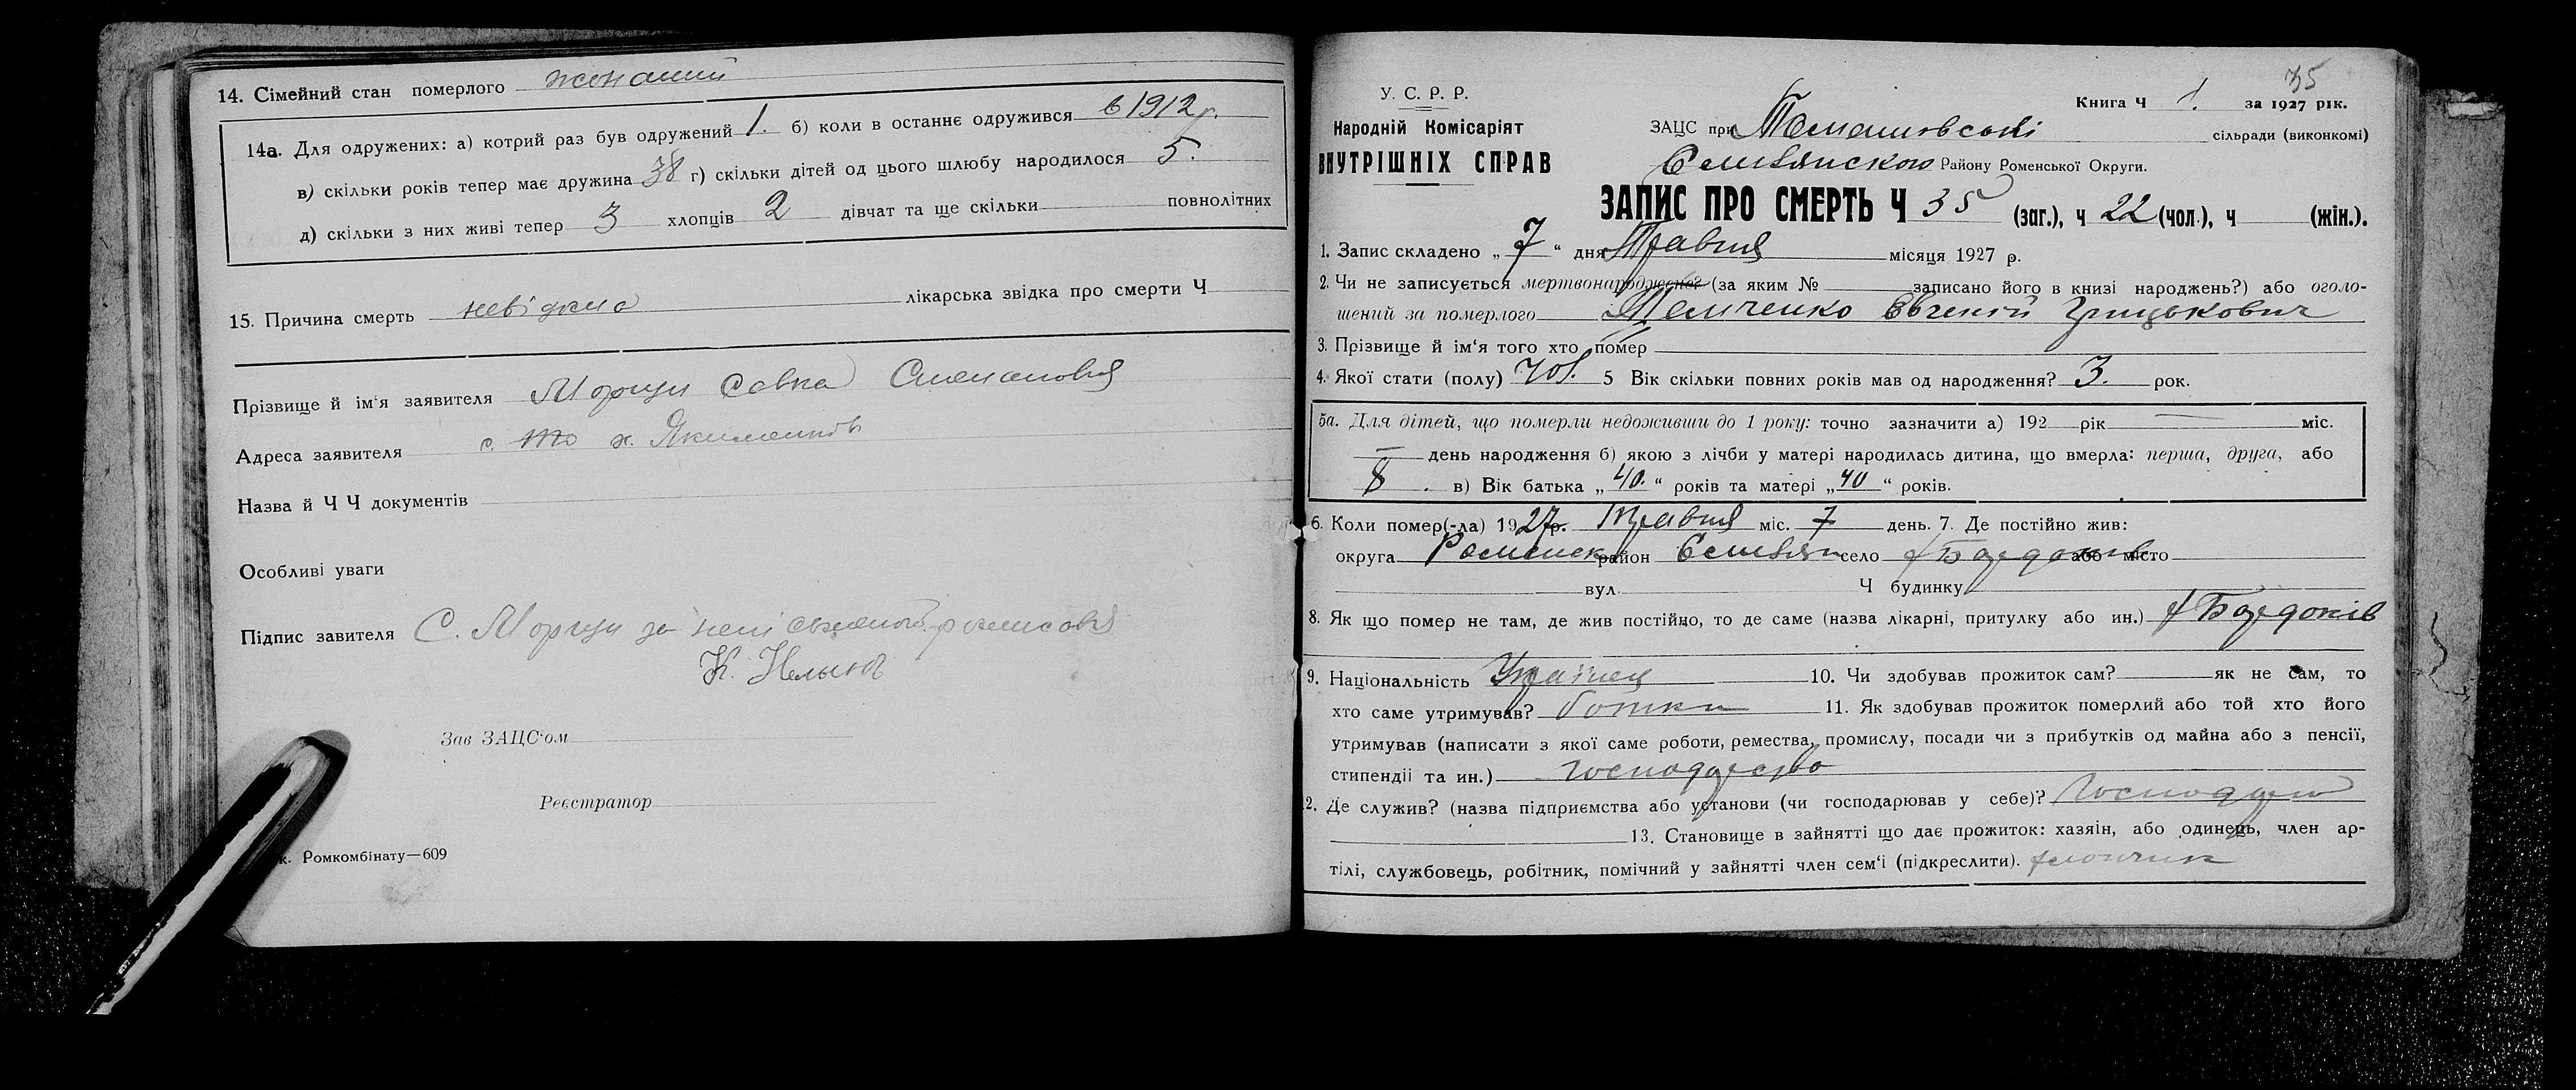 14. Сімейний стан померлого жонатий
14а. Для одружених: а) котрий раз був одружений 1. б) коли в останнє одружився в 1912 р.
в) скільки років тепер має дружина 38 г) скільки дітей од цього шлюбу народилося 5.
д) скільки з них живі тепер 3 хлопців 2 дівчат та ще скільки повнолітних
15. Причина смерть невідома лікарська звідка про смерти Ч
Прізвище й ім'я заявителя Моргун Савка Степанович
Адреса заявителя с. х. Якименків
Назва й Ч Ч документів
Особливі уваги
Підпис завителя С. Моргун за
К.
Зав ЗАЦС'ом
Реєстратор
к. Ромкомбінату—609
35
У. С. Р. Р.
Книга Ч 1. за 1927 рік.
Народній Комісаріят
ВНУТРІШНІХ СПРАВ
ЗАЦС при сільради (виконкомі)
Району Роменської Округи.
ЗАПИС ПРО СМЕРТЬ Ч 35 (заг.), ч 22 (чол.), ч (жін.).
1. Запис складено „ 7 “ дня Травня місяця 1927 р.
2. Чи не записується мертвонароджене (за яким № записано його в книзі народжень?) або оголо-
шений за померлого Темченко Євгеній Грицькович
3. Прізвище й ім'я того хто помер
4. Якої стати (полу) чол. 5 Вік скільки повних років мав од народження? 3. рок.
5а. Для дітей, що померли недоживши до 1 року: точно зазначити а) 192 рік — міс.
— день народження б) якою з лічби у матері народилась дитина, що вмерла: перша, друга, або
8. в) Вік батька „ 40. “ років та матері „ 40 “ років.
6. Коли помер(-ла) 1927р. Травня міс. 7 день. 7. Де постійно жив:
округа Роменск район село х або місто
вул. Ч будинку
8. Як що помер не там, де жив постійно, то де саме (назва лікарні, притулку або ин.) х
9. Національність Українец 10. Чи здобував прожиток сам? як не сам, то
хто саме утримував? батьки 11. Як здобував прожиток померлий або той хто його
утримував (написати з якої саме роботи, ремества, промислу, посади чи з прибутків од майна або з пенсії,
стипендії та ин.) господарство
12. Де служив? (назва підприємства або установи (чи господарював у себе)?
13. Становище в зайнятті що дає прожиток: хазяін, або одинець, член ар-
тілі, службовець, робітник, помічний у зайнятті член сем'ї (підкреслити). хлопчик